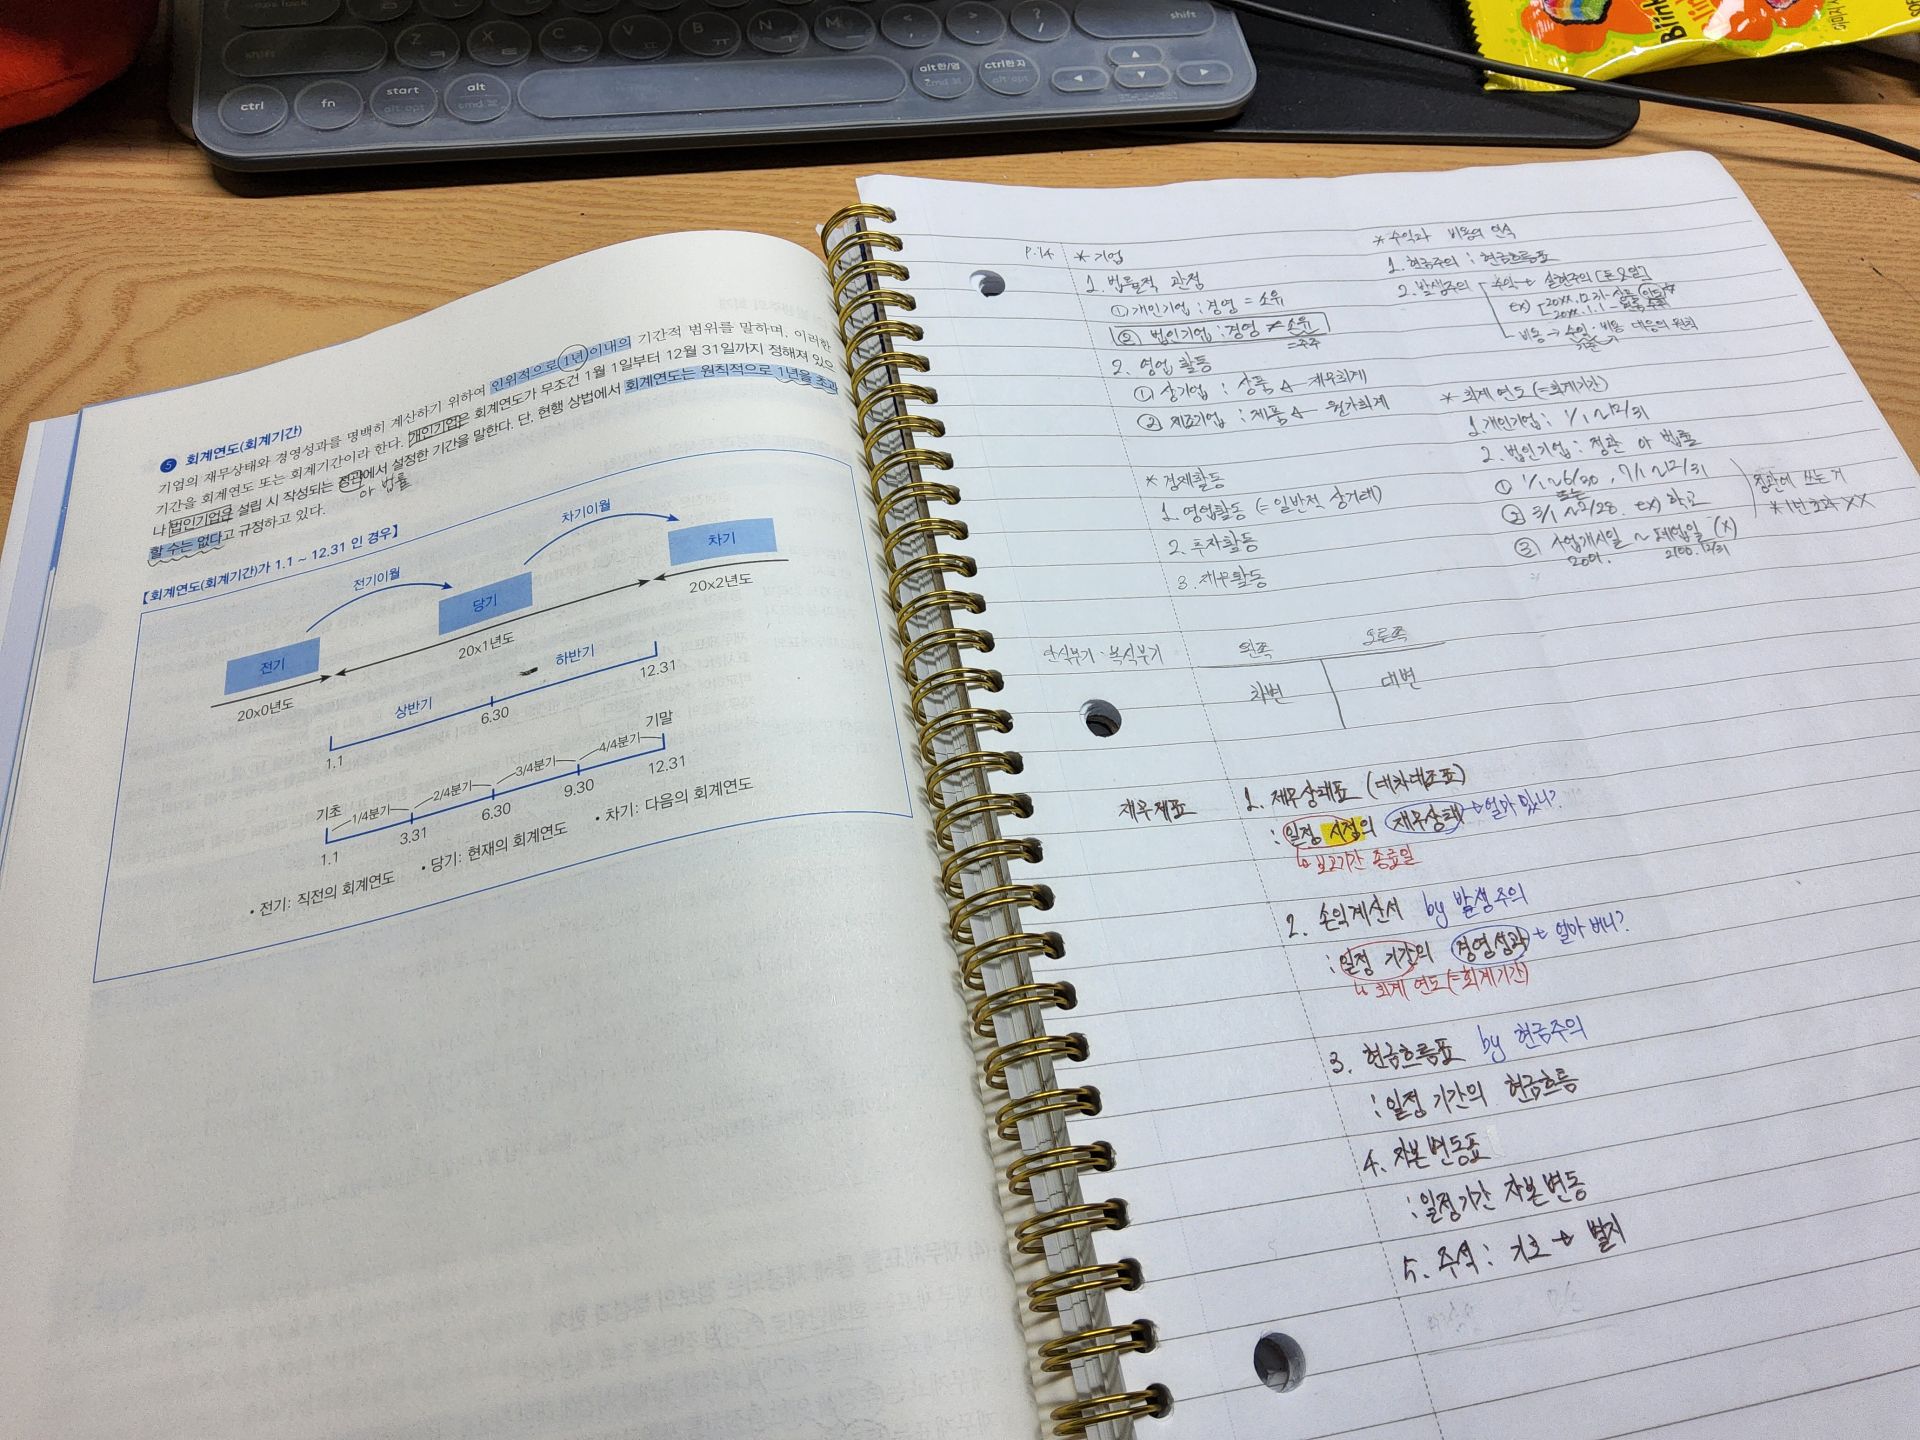 shift
Z ㅋ
X ㅌ
C ㅊ
V ㅍ
B ㅠ
N ㅜ
M ㅡ
shift
ctrl
fn
start
alt opt
alt
cmd ⌘
alt 한/영
cmd ⌘
ctrl 한자
alt opt
Blink
❺ 회계연도(회계기간)
기업의 재무상태와 경영성과를 명백히 계산하기 위하여 인위적으로 1년 이내의 기간적 범위를 말하며, 이러한
기간을 회계연도 또는 회계기간이라 한다. 개인기업은 회계연도가 무조건 1월 1일부터 12월 31일까지 정해져 있으
나 법인기업은 설립 시 작성되는 정관에서 설정한 기간을 말한다. 단, 현행 상법에서 회계연도는 원칙적으로 1년을 초과
or 법률
할 수는 없다고 규정하고 있다.
【회계연도(회계기간)가 1.1 ~ 12.31 인 경우】
전기이월
차기이월
전기
당기
차기
20x0년도
20x1년도
20x2년도
상반기
하반기
1.1
6.30
12.31
기초
1/4분기
2/4분기
3/4분기
4/4분기
기말
1.1
3.31
6.30
9.30
12.31
• 전기: 직전의 회계연도
• 당기: 현재의 회계연도
• 차기: 다음의 회계연도
P.14
* 기업
1. 법률적 관점
① 개인기업 : 경영 = 소유
② 법인기업 : 경영 ≠ 소유
=주주
2. 영업 활동
① 상기업 : 상품 재무회계
② 제조기업 : 제품 원가회계
* 경제활동
1. 영업활동 (= 일반적 상거래)
2. 투자활동
3. 재무활동
* 수익과 비용의 인식
1. 현금주의 : 현금흐름표
2. 발생주의 수익 → 실현주의
ex) 20xx. 12. 31. 상품
20xx. 1. 1
비용 → 수익·비용 대응의 원칙
* 회계 연도 (=회계기간)
1. 개인기업 : 1/1 ~ 12/31
2. 법인기업 : 정관 or 법률
① 1/1 ~ 6/30 , 7/1 ~ 12/31
또는
② 3/1 ~ 2/28. ex) 학교
③ 사업개시일 ~ 폐업일 (X)
2001.
2100. 12/31
정관에 쓰는 거
* 1년 초과 XX
단식부기 · 복식부기
왼쪽
오른쪽
차변
대변
재무제표
1. 재무상태표 (대차대조표)
: 일정 시점의 재무상태 → 얼마 있니?
↳ 보고기간 종료일
2. 손익계산서 by 발생주의
: 일정 기간의 경영성과 → 얼마 버니?
↳ 회계 연도 (=회계기간)
3. 현금흐름표 by 현금주의
: 일정 기간의 현금흐름
4. 자본변동표
: 일정기간 자본변동
5. 주석 : 기호 → 별지